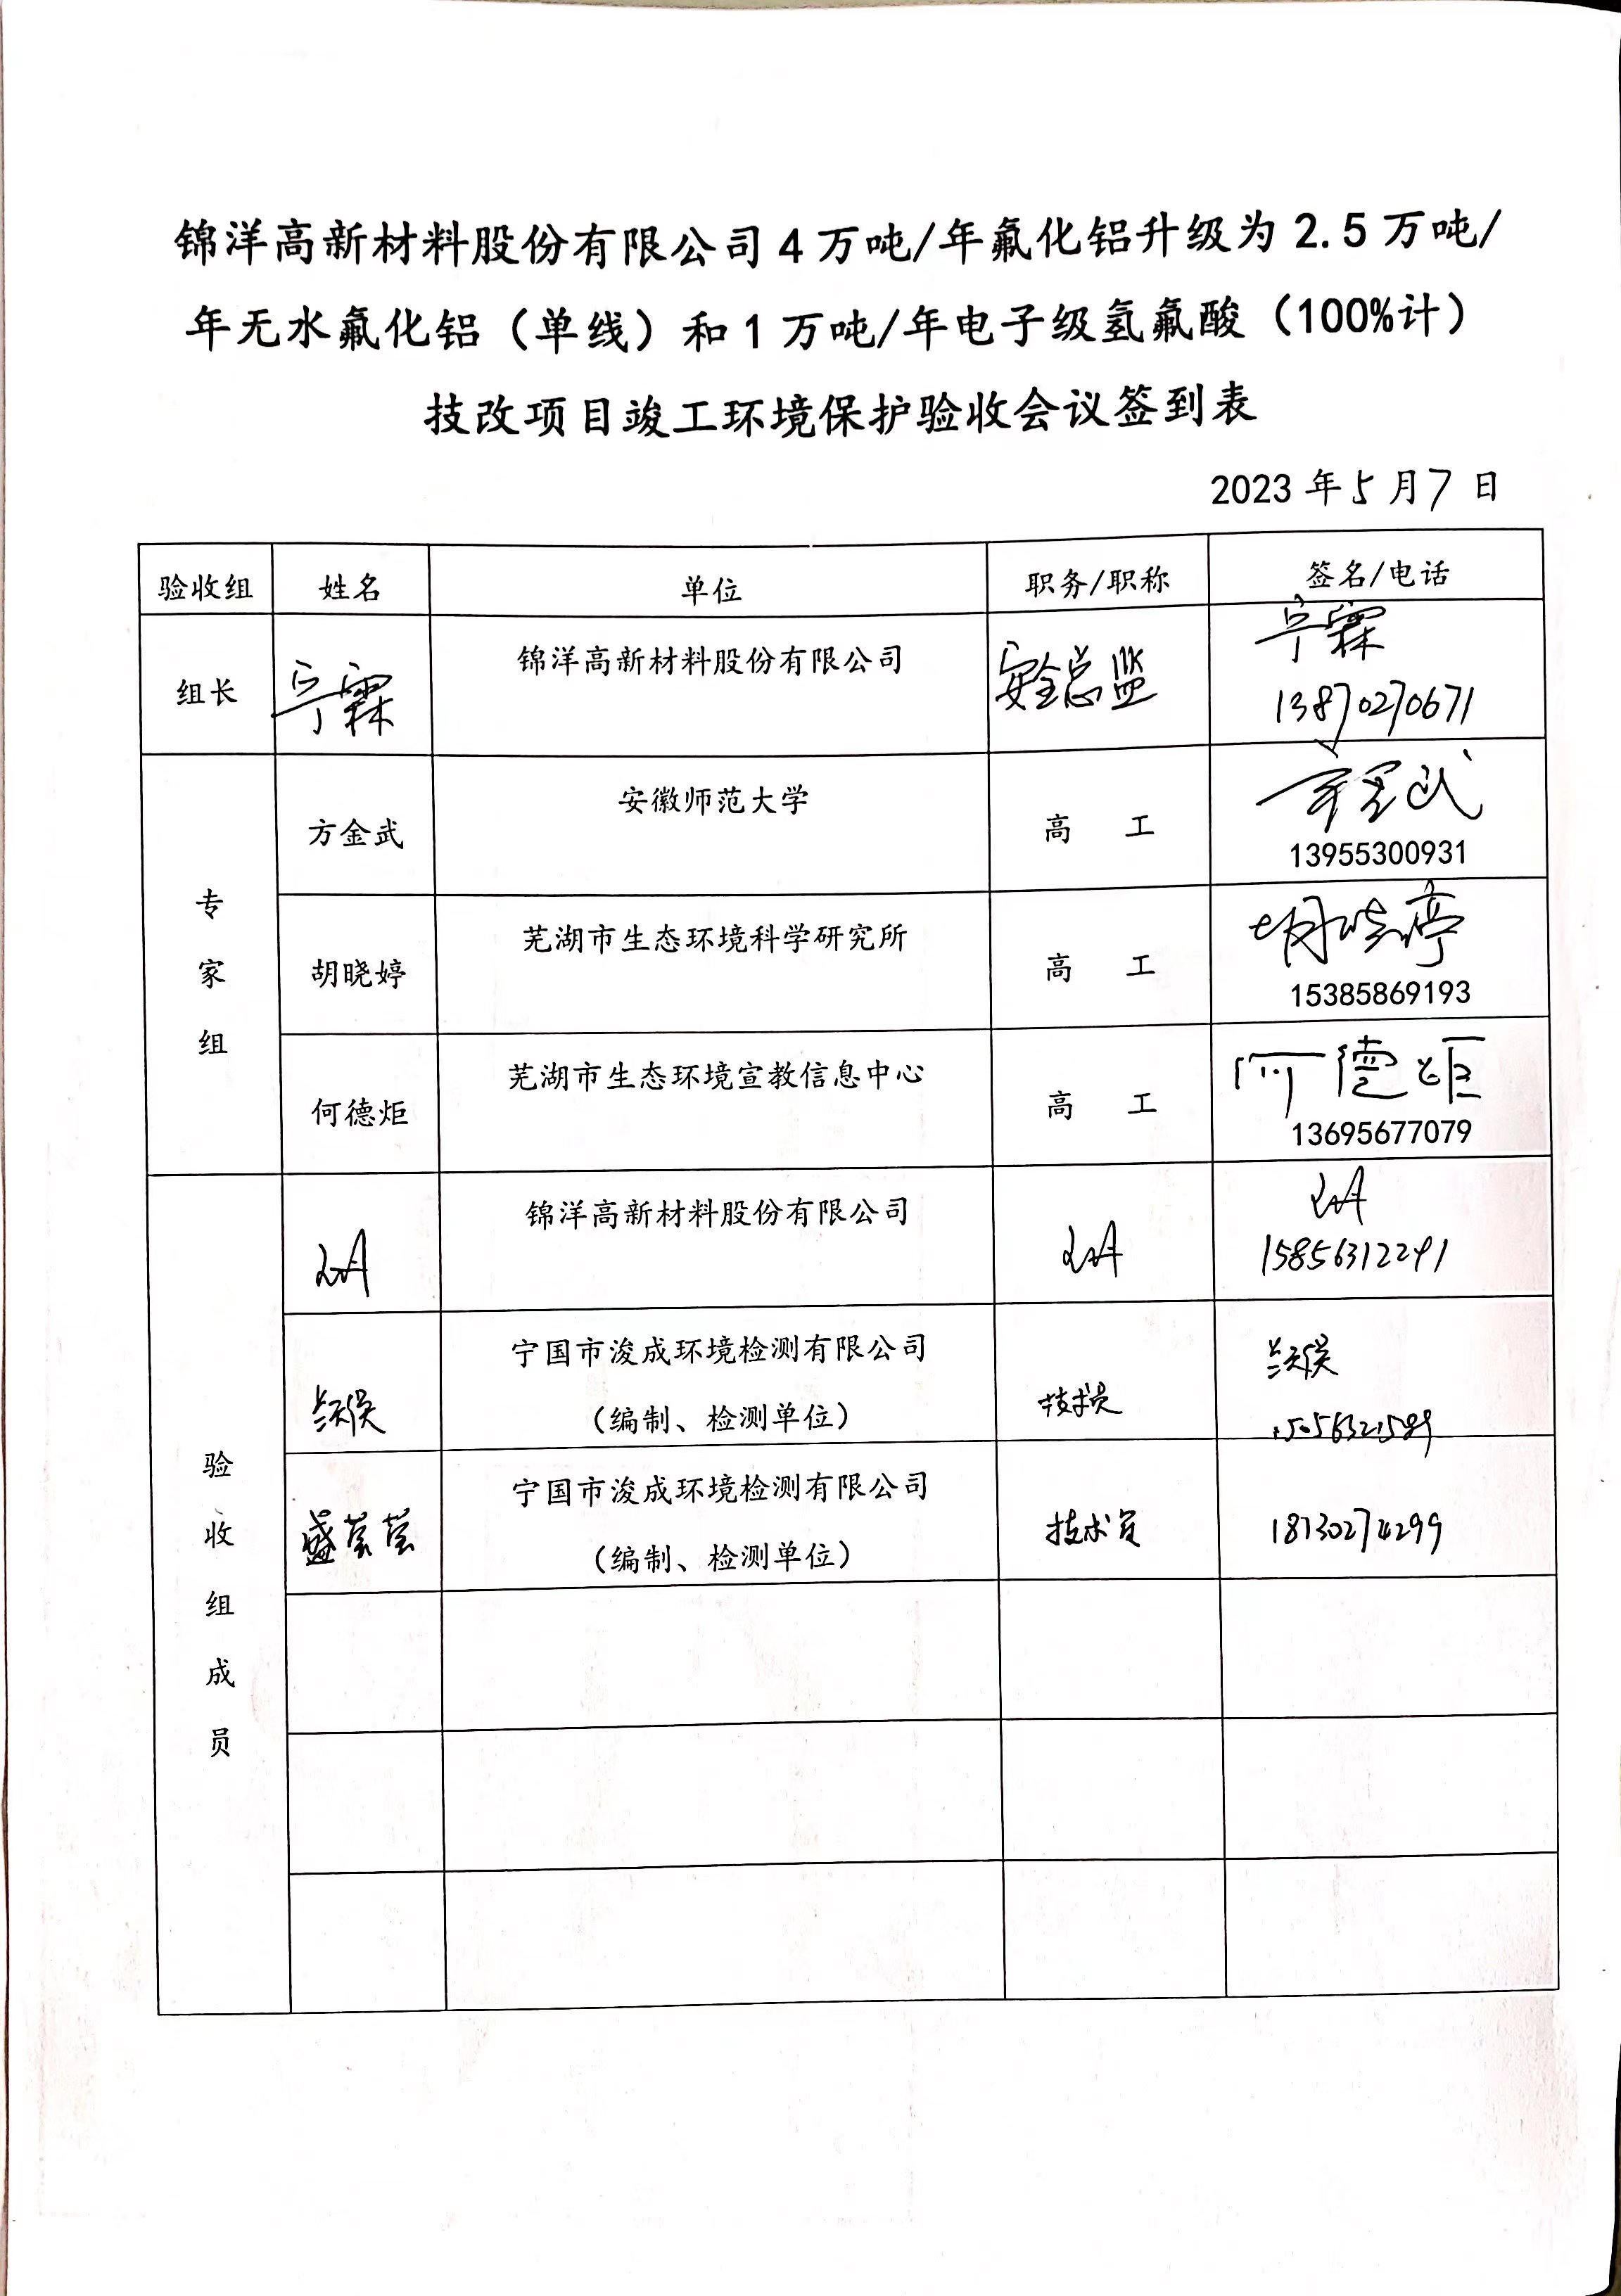 锦洋高新材料股份有限公司4万吨/年氟化铝升级为2.5万吨/
年无水氟化铝（单线）和1万吨/年电子级氢氟酸（100%计）
技改项目竣工环境保护验收会议签到表
2023年5月7日
验收组 姓名 单位 职务/职称 签名/电话
组长 宁霖 锦洋高新材料股份有限公司 安全总监 宁霖
13870270671
专家组
方金武 安徽师范大学 高 工 方金武
13955300931
胡晓婷 芜湖市生态环境科学研究所 高 工 胡晓婷
15385869193
何德炬 芜湖市生态环境宣教信息中心 高 工 何德炬
13695677079
验收组成员
锦洋高新材料股份有限公司
15856312291
宁国市浚成环境检测有限公司
（编制、检测单位） 技术员
15056321589
盛芸芸 宁国市浚成环境检测有限公司
（编制、检测单位） 技术员 18130274299